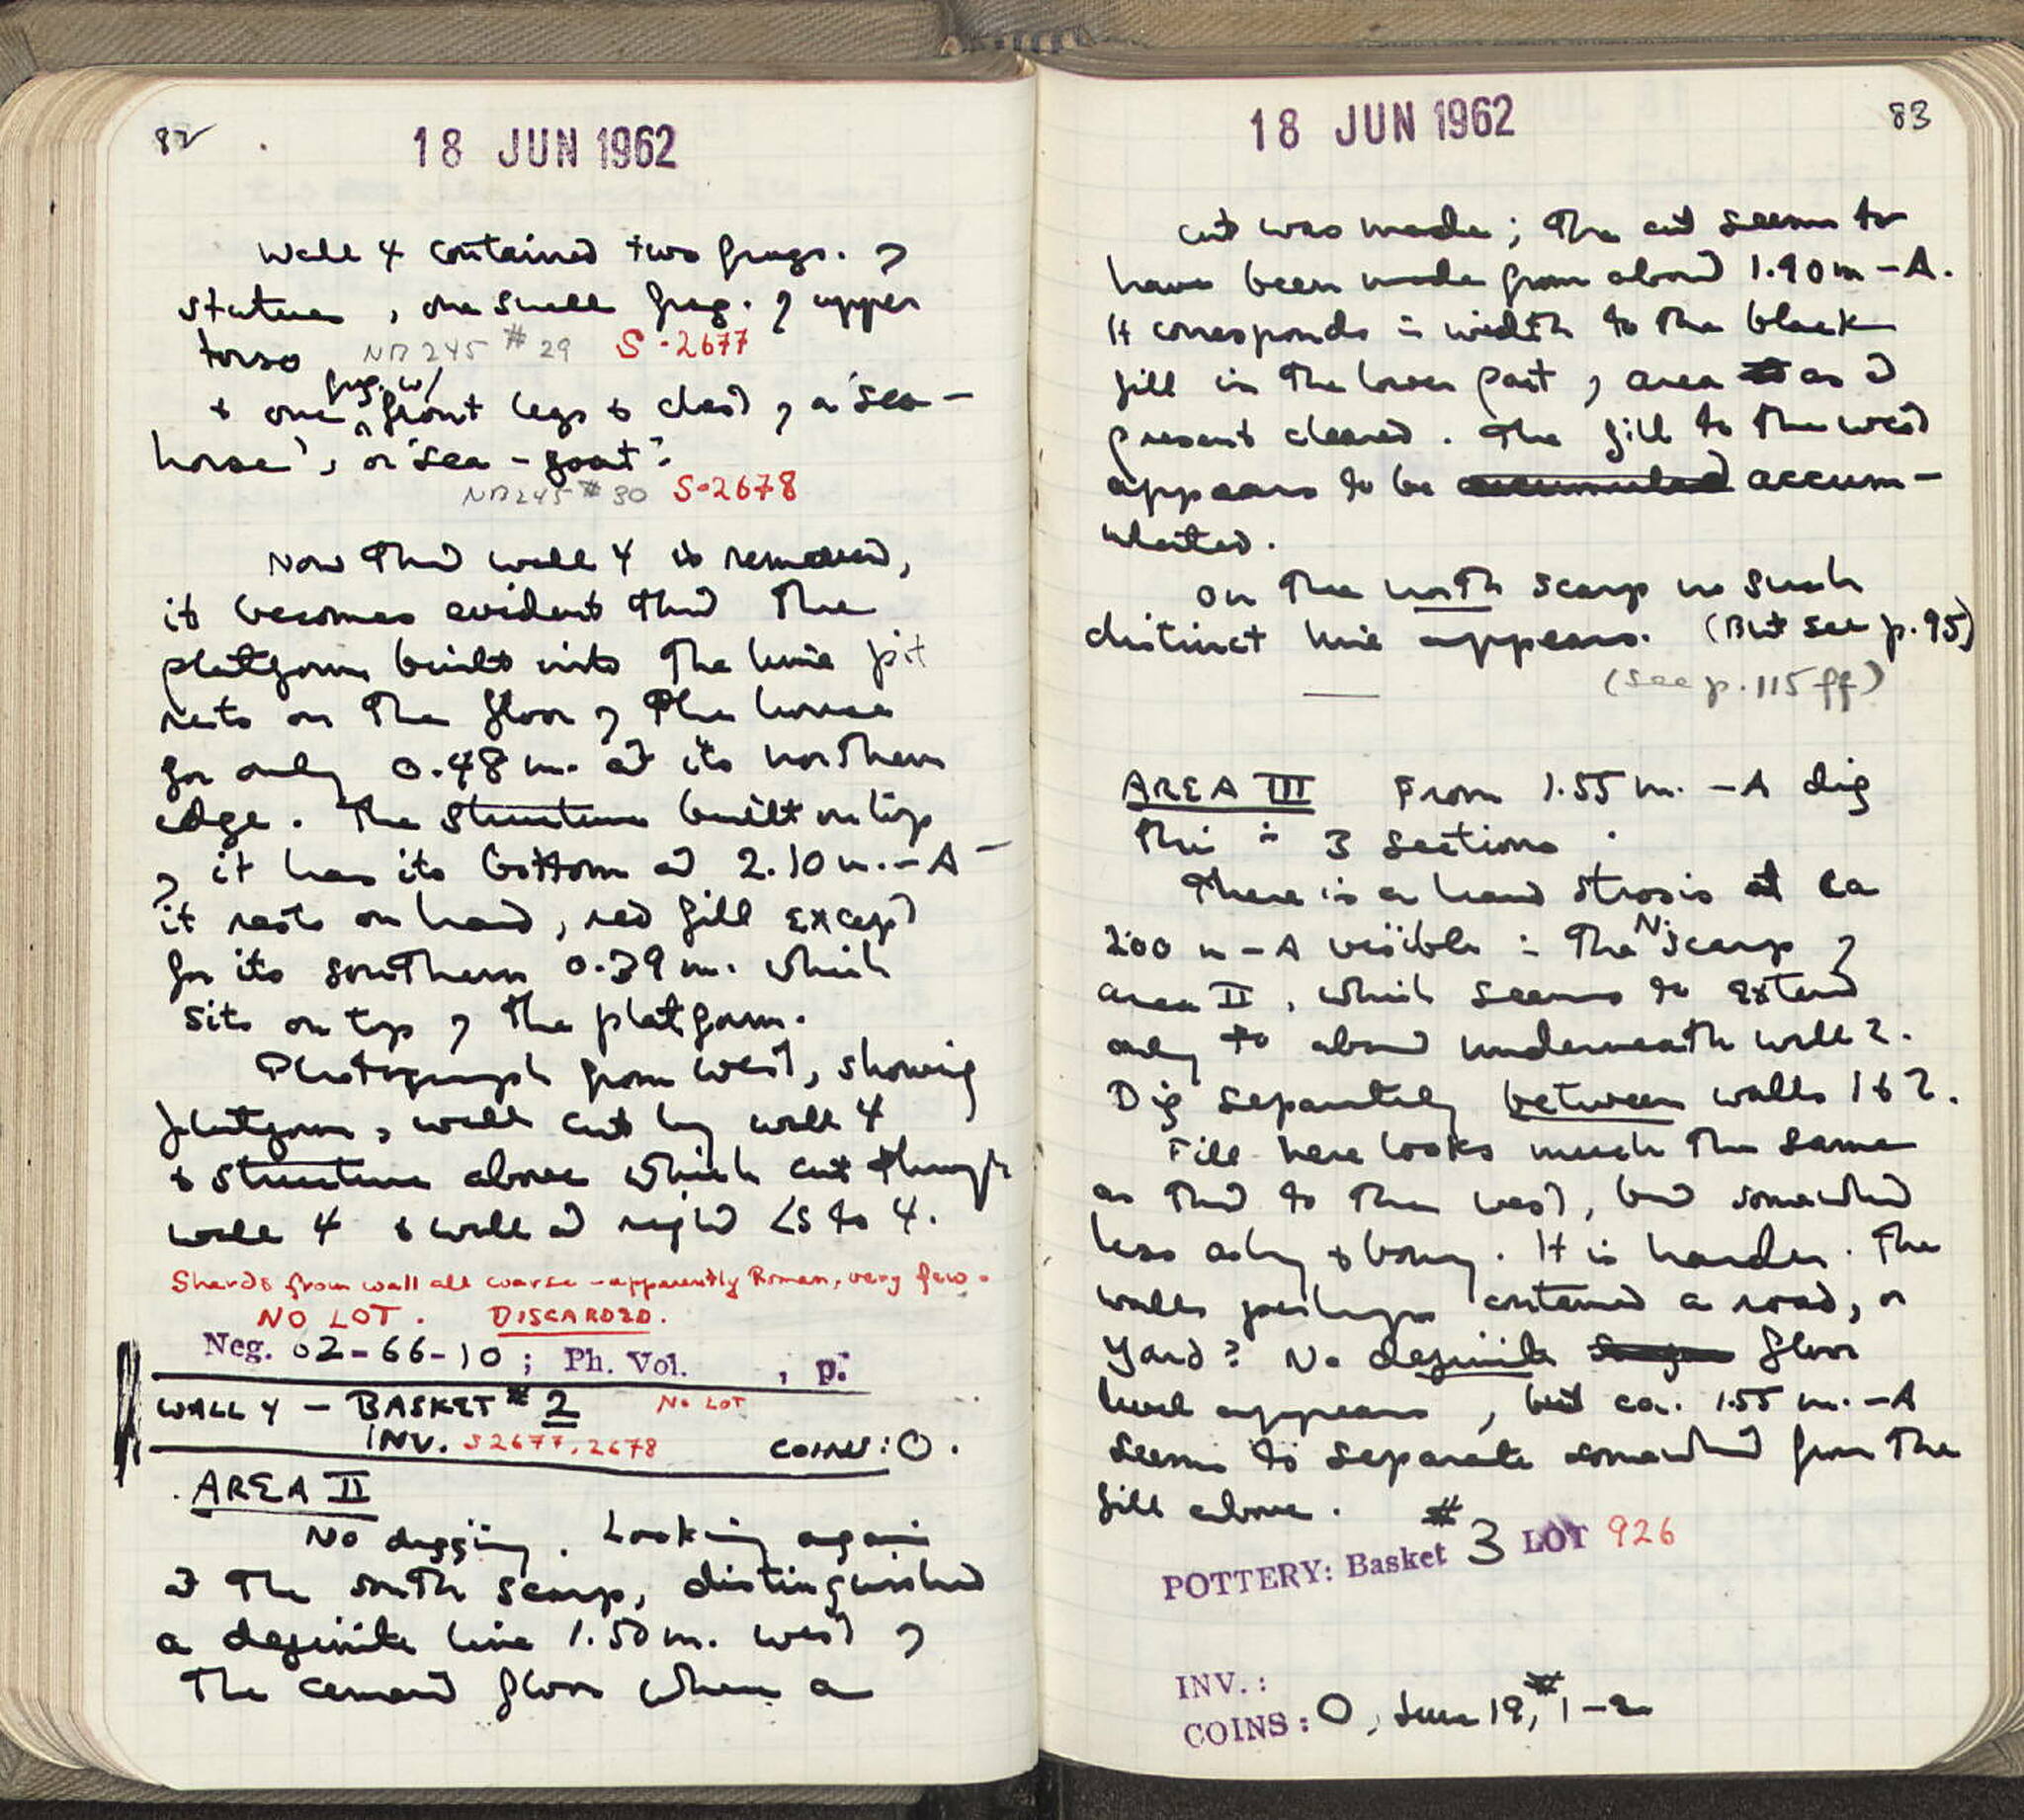 82
18 JUN 1962
Wall 4 contained two frags. of
statues, one small frag. of upper
torso NB 245 #29 S-2677
frag. w/
& one front legs & chest of a 'sea-
horse', or 'sea-goat'?
NB 245 #30 S-2678
Now that wall 4 is removed,
it becomes evident that the
platform built into the lime pit
rests on the floor of the house
for only 0.48 m. at its northern
edge. The structure built on top
of it has its bottom at 2.10 m. -A -
it rests on hard, red fill except
for its southern 0.39 m. which
sits on top of the platform.
Photograph from west, showing
platform, wall cut by wall 4
& structure above which cut through
wall 4 & wall at right <s to 4.
Sherds from wall all coarse - apparently Roman, very few.
NO LOT. DISCARDED.
Neg. 02-66-10; Ph. Vol. , p.
WALL 4 - BASKET #2 No LOT
INV. S2677, 2678 COINS: 0.
AREA II
No digging. Looking again
at the south scarp, distinguished
a definite line 1.50 m. west of
the cement floor where a
18 JUN 1962
83
cut was made; the cut seems to
have been made from about 1.90 m - A.
It corresponds in width to the black
fill in the lower part of area as at
present cleared. The fill to the west
appears to be accumulated accum-
ulated.
On the north scarp no such
distinct line appears. (But see p. 95)
(see p. 115 ff)
AREA III From 1.55 m. -A dig
this in 3 sections.
There is a hard strosis at ca
2.00 m - A visible in the N. scarp of
area II, which seems to extend
only to about underneath wall 2.
Dig separately between walls 1 & 2.
Fill here looks much the same
as that to the west, but somewhat
less ashy & bony. It is harder. The
walls perhaps contained a road, or
yard? No definite floor
level appears, but ca. 1.55 m. -A
seems to separate somewhat from the
fill above.
POTTERY: Basket #3 LOT 926
INV.:
COINS: 0, June 19, #1-2